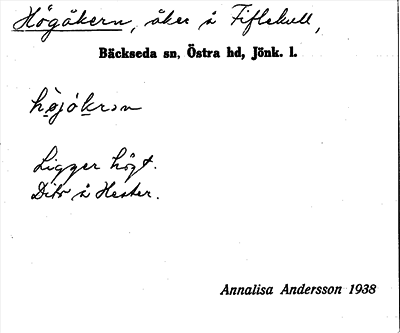 Högåkern, åker å Fiflekull,
Bäckseda sn, Östra hd, Jönk. l.
Ligger högt.
Dito å Hester.
Annalisa Andersson 1938